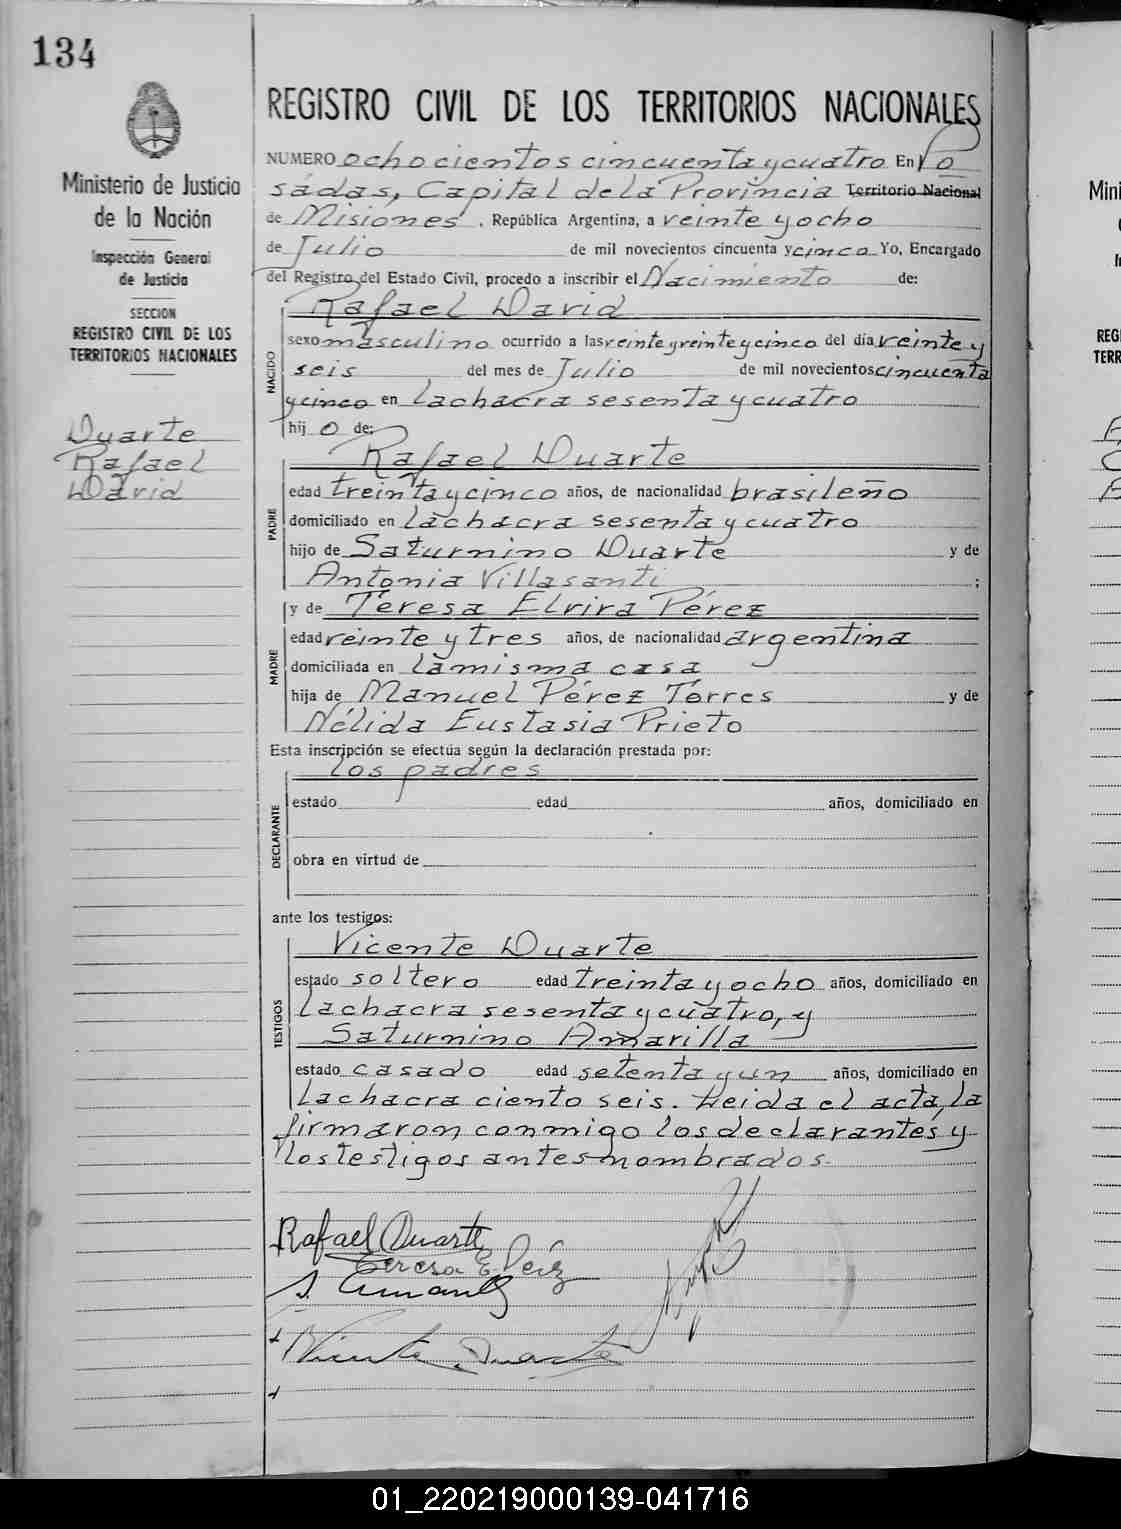 134
Ministerio de Justicia
de la Nación
Inspección General
de Justicia
SECCION
REGISTRO CIVIL DE LOS
TERRITORIOS NACIONALES
Duarte
Rafael
David
REGISTRO CIVIL DE LOS TERRITORIOS NACIONALES
NUMERO ochocientos cincuenta y cuatro En Po
sadas, Capital de la Provincia Territorio Nacional
de Misiones, República Argentina, a veinte y ocho
de Julio de mil novecientos cincuenta y cinco Yo, Encargado
del Registro del Estado Civil, procedo a inscribir el Nacimiento de:
Rafael David
NACIDO
sexo masculino ocurrido a las veinte y veinte y cinco del día veinte y
seis del mes de Julio de mil novecientos cincuenta
y cinco en la chacra sesenta y cuatro
hijo de:
Rafael Duarte
PADRE
edad treinta y cinco años, de nacionalidad brasileño
domiciliado en la chacra sesenta y cuatro
hijo de Saturnino Duarte y de
Antonia Villasanti ;
y de Teresa Elvira Pérez
MADRE
edad veinte y tres años, de nacionalidad argentina
domiciliada en la misma casa
hija de Manuel Pérez Torres y de
Nélida Eustasia Prieto
Esta inscripción se efectúa según la declaración prestada por:
los padres
DECLARANTE
estado edad años, domiciliado en
obra en virtud de
ante los testigos:
Vicente Duarte
TESTIGOS
estado soltero edad treinta y ocho años, domiciliado en
la chacra sesenta y cuatro, y
Saturnino Amarilla
estado casado edad setenta y un años, domiciliado en
la chacra ciento seis. Leida el acta, la
firmaron conmigo los declarantes y
los testigos antes nombrados.
Rafael Duarte
Teresa E. Pérez
S. Amarilla
Vicente Duarte
Mini
REG
TERR
01_220219000139-041716